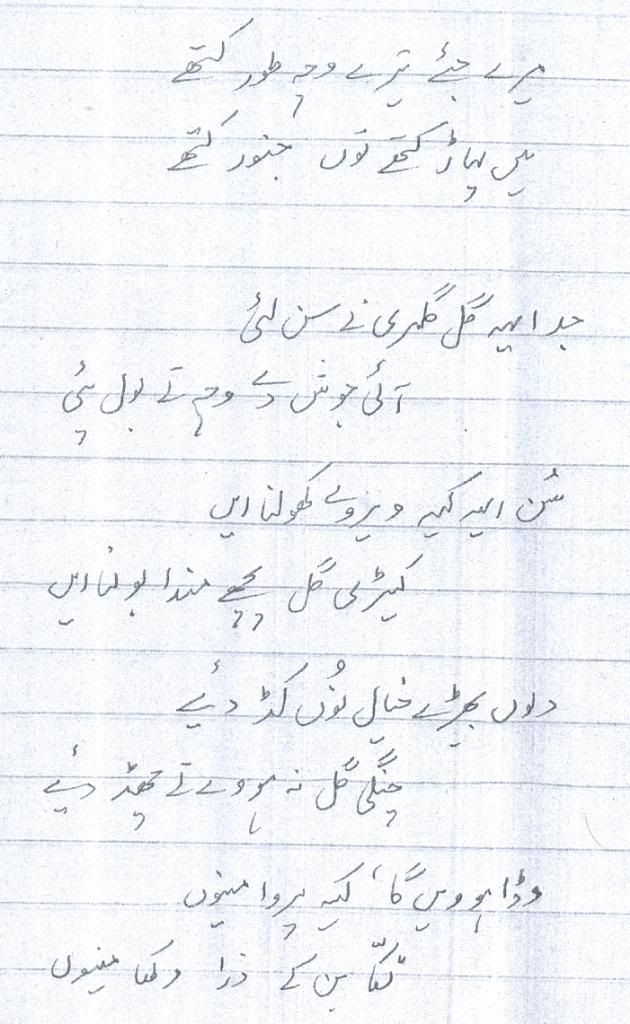 میرے جئے تیرے وچہ طور کتھے
میں پہاڑ کتھے توں جنور کتھے
جد ایہہ گل گلہری نے سن لئی
آئی جوش دے وچ تے بول پئی
سُن ایہہ کیہہ ویروے کھولنا ایں
کیہڑی گل پچھے مندا بولنا ایں
دلوں بھیڑے خیال نُوں کڈ دئیے
چنگی گل نہ ہووے تے چھڈ دئیے
وڈا ہوویں گا، کیہہ پروا مینوں
نکّا بن کے ذرا وکھا مینوں